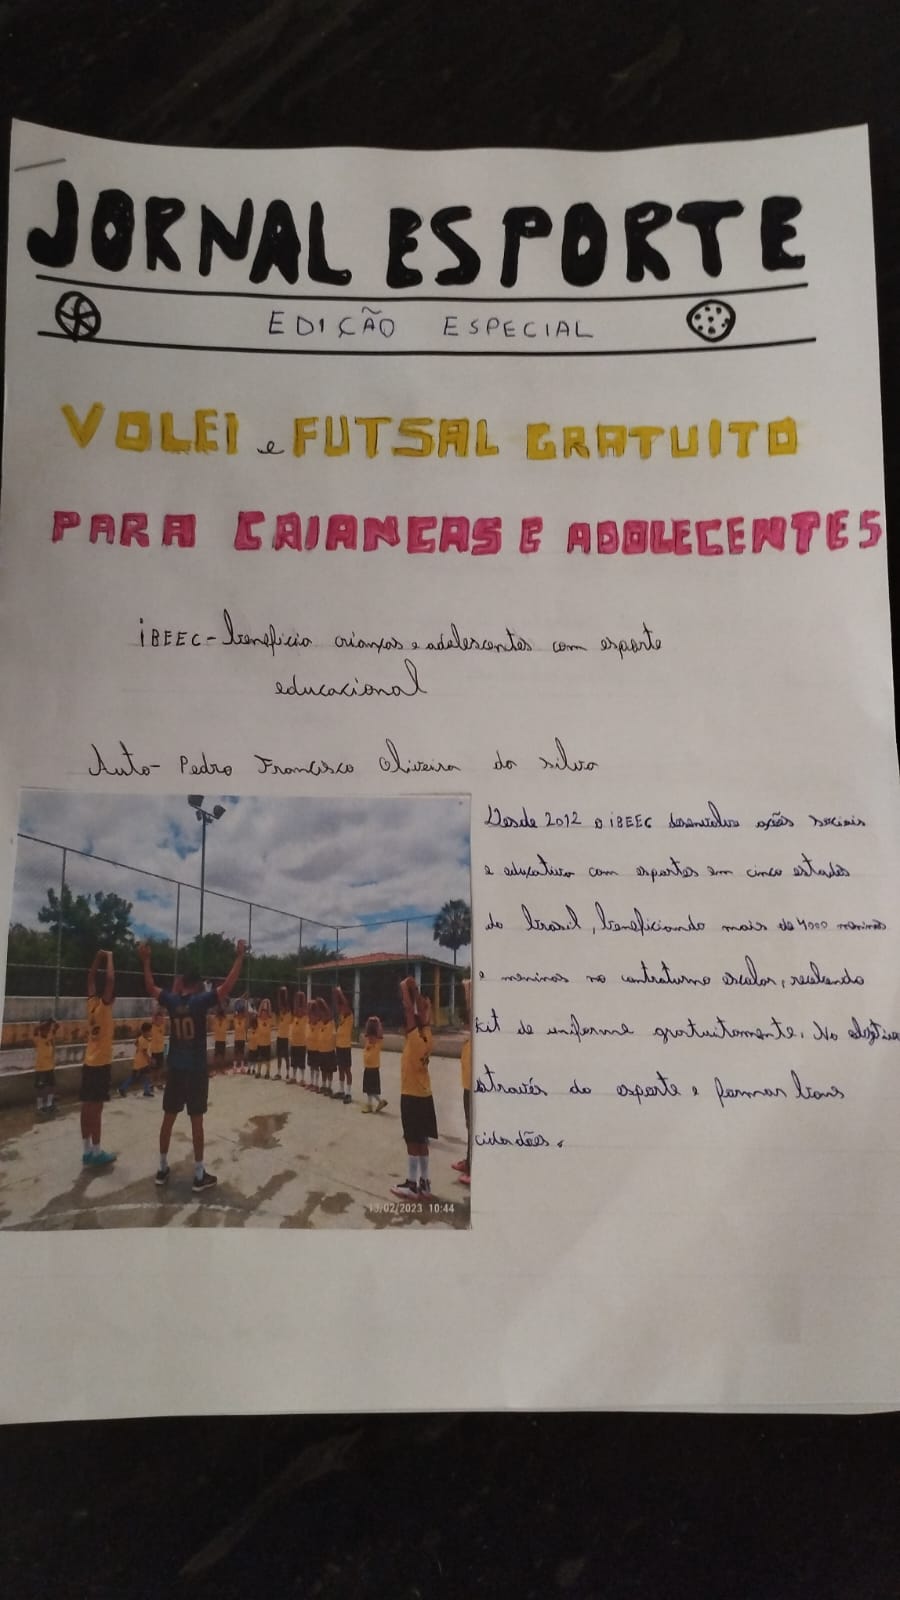 JORNAL ESPORTE
EDIÇÃO ESPECIAL
VOLEI e FUTSAL GRATUITO
PARA CAIANCAS E ADOLECENTES
iBEEC - beneficia crianças e adolescentes com esporte
educacional
Auto- Pedro Francisco Oliveira da Silva
Desde 2012 o iBEEC desenvolve ações sociais
e educativo com esportes em cinco estados
do brasil, beneficiando mais de meninos
e meninas no contraturno escolar, recebendo
kit de uniforme gratuitamente. No
através do esporte e formar bons
cidadões.
13/02/2023 10:44
10